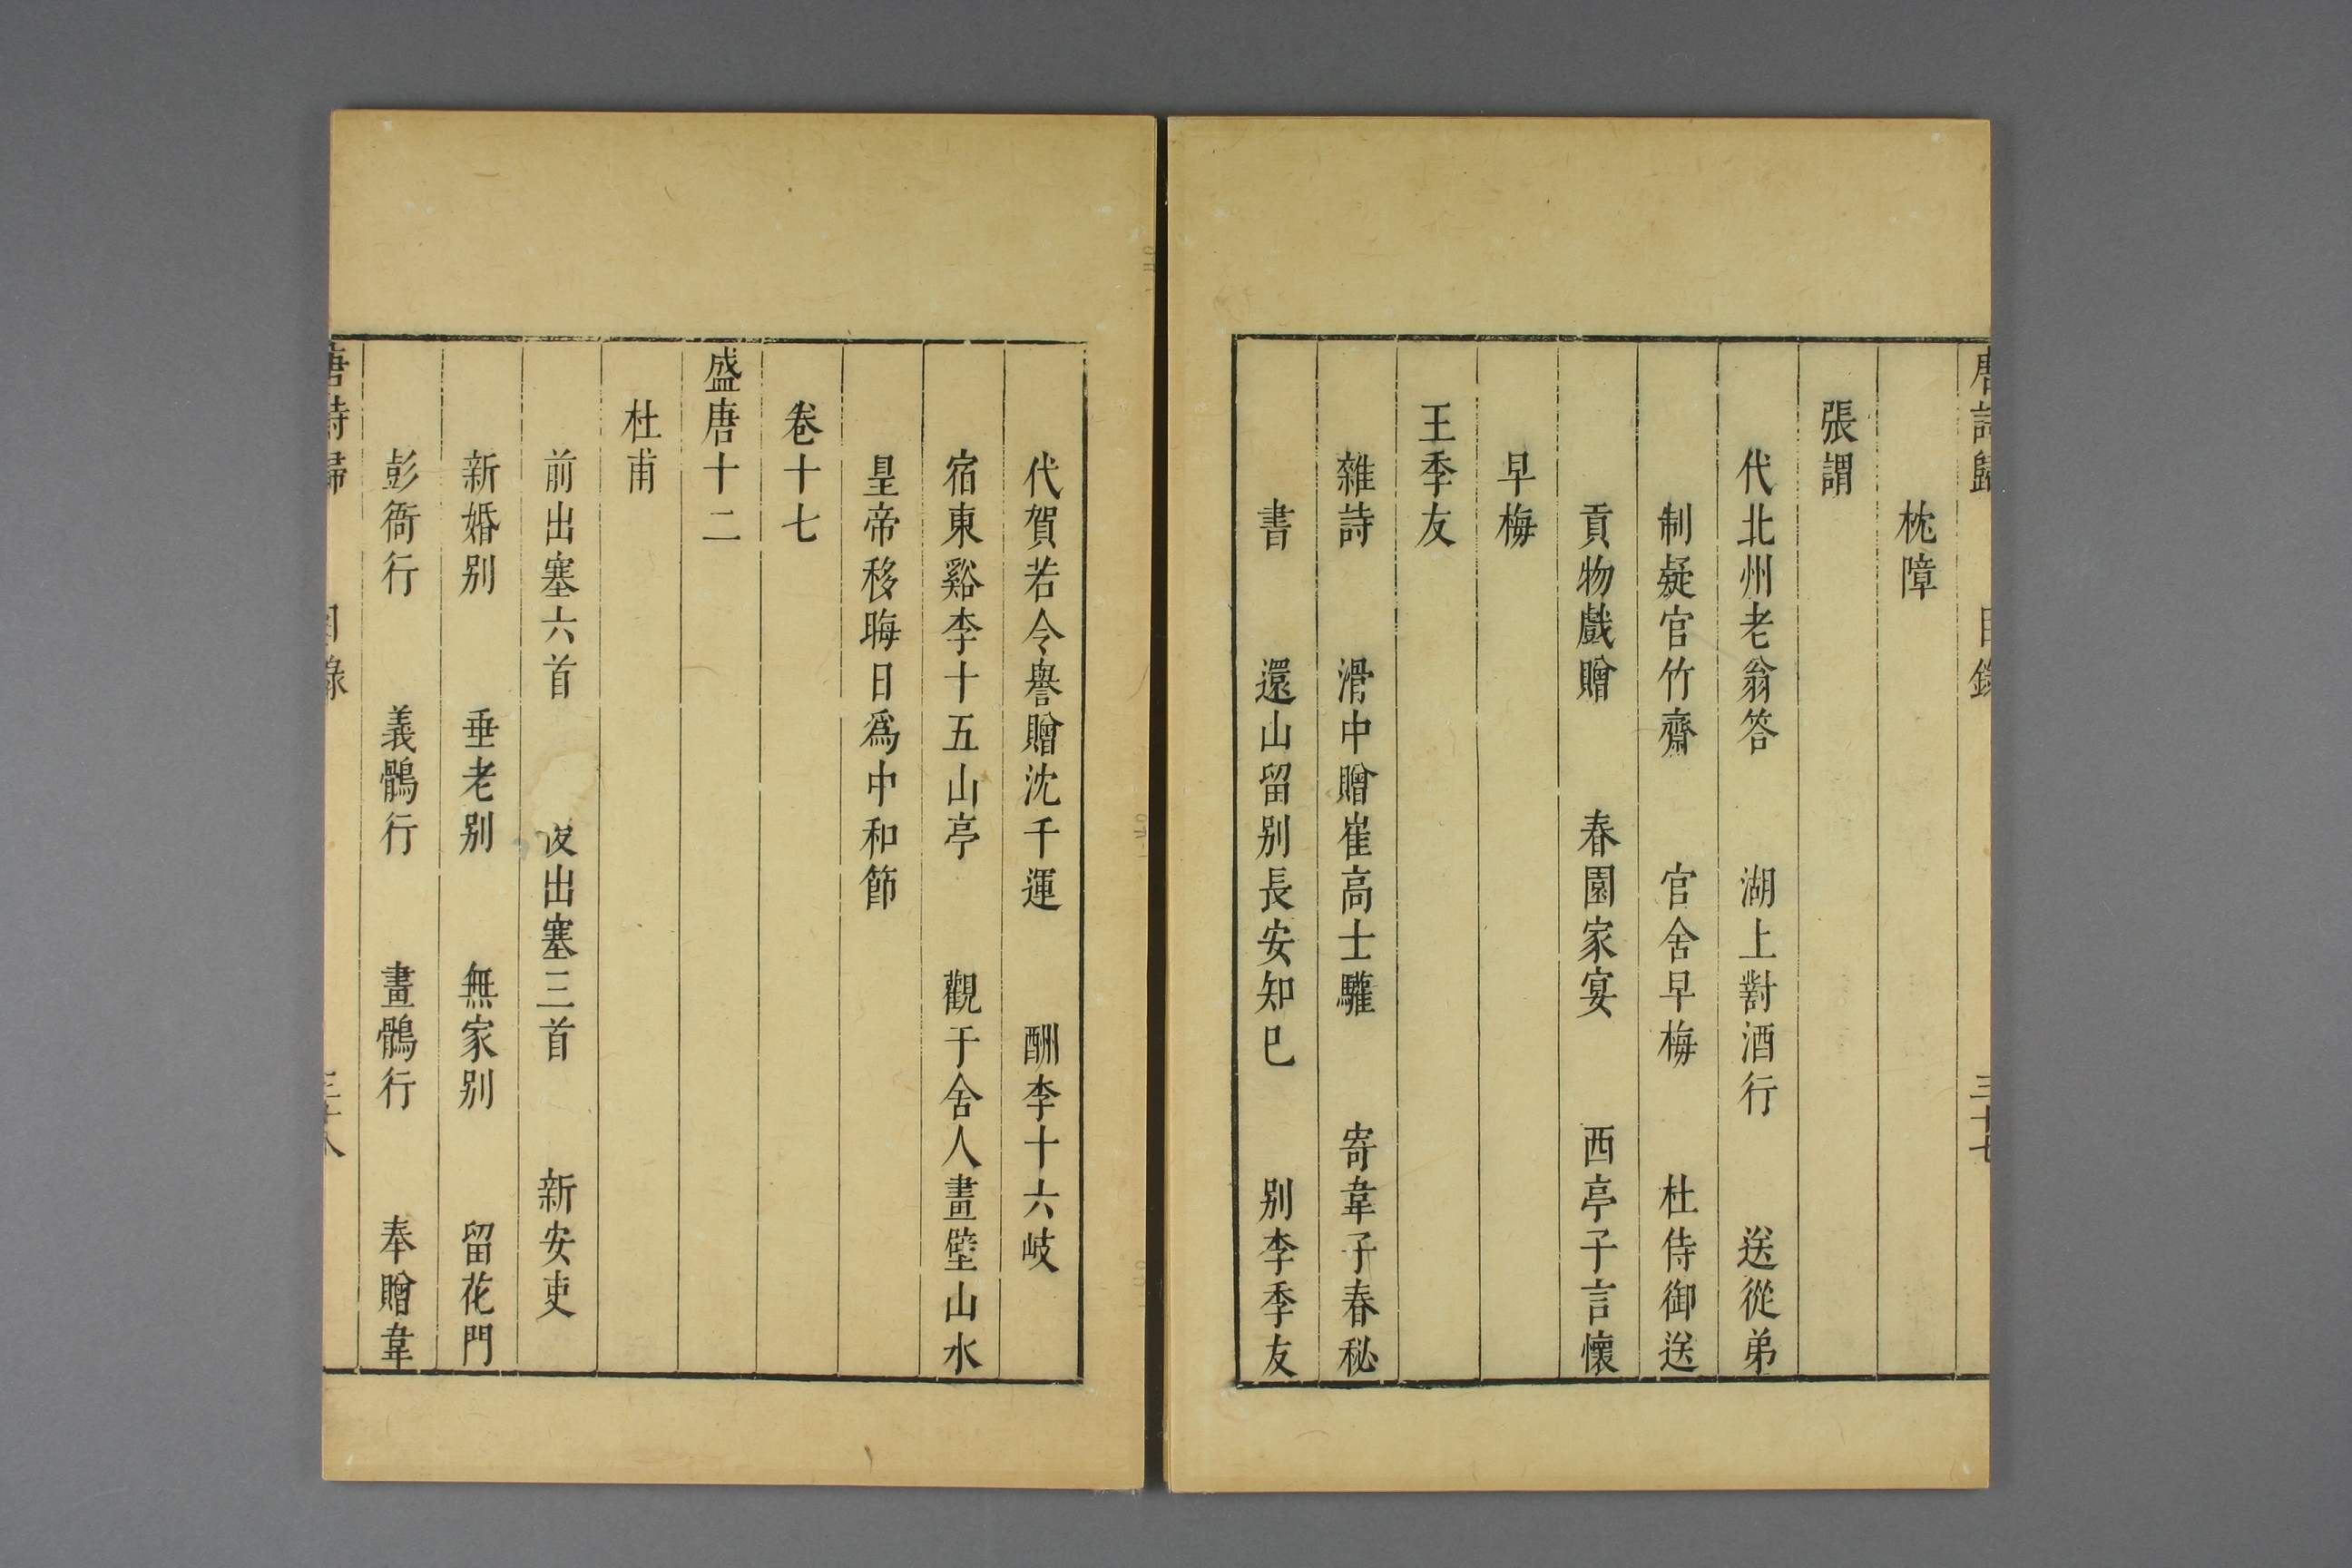 唐詩歸 目錄 三十七
枕障
張謂
代北州老翁答 湖上對酒行 送從弟
制疑官竹齋 官舍早梅 杜侍御送
貢物戲贈 春園家宴 西亭子言懷
早梅
王季友
雜詩 滑中贈崔高士驩 寄韋子春秘
書 還山留别長安知巳 别李季友
代賀若令譽贈沈千運 酬李十六岐
宿東谿李十五山亭 觀于舍人畫壁山水
皇帝移晦日爲中和節
卷十七
盛唐十二
杜甫
前出塞六首 後出塞三首 新安吏
新婚别 垂老别 無家别 留花門
彭衙行 義鶻行 畫鶻行 奉贈韋
唐詩歸 目錄 三十八